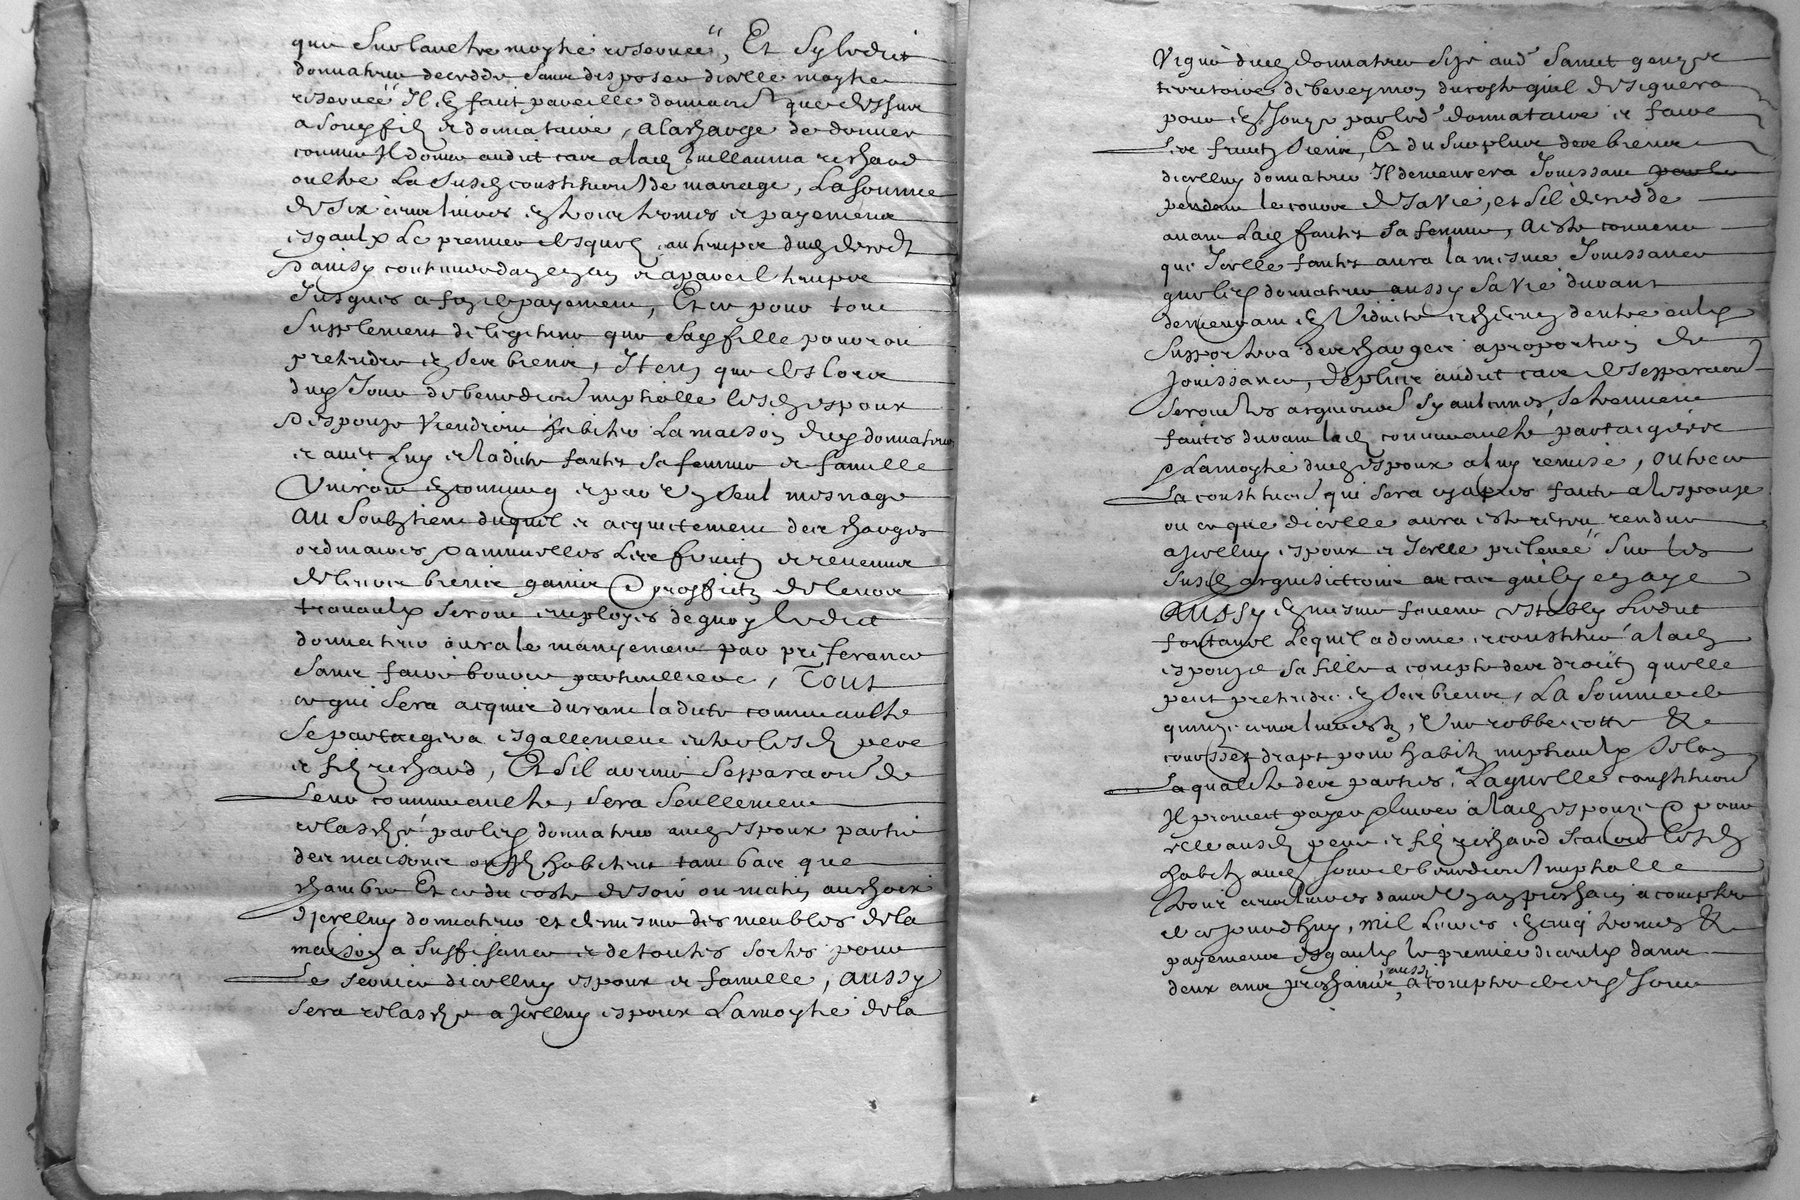 que sur lautre moytié reservée, Et sy ledict
donnateur decedde sans disposer dicelle moytie
reservée Il en faict pareille donnaon que dessus
a sond filz et donnataire, alacharge de donner
comme Il donne audict cas a lad Guillauma richaud
oultre La susd constitution de mariage, La somme
de six cens livres en trois termes et payemens
esgaulx Le premier desquelz au temps dud deces
Dansy continuer dan en an et apareil temps
Jusques a fin de payement, Et ce pour tout
Supplement de legitime que sad fille pourroit
pretendre en ses biens, Item que deslors
dud Jour de benediction nuptialle lesd espoux
Despouze Viendront habiter La maison dud donnateur
et avec Luy et ladicte fantes sa femme et famille
Vivront en commung et par un seul mesnage
Au Soubztient duquel et acquictement des charges
ordinaires annuelles Les fruictz et revenus
de leurs biens gains proffictz de leurs
travaulx seront employes dequoy ledict
donnateur aura le maniement par preferance
sans faire bource particulliere, Tout
ce qui sera acquis durant ladicte communaulte
se partaigera esgallement entre lesd pere
et filz richaud, Et sil avenoit separaon de
Leur communaulte, sera seullement
relasché par led donnateur aud espoux partie
des maisons ou ilz habitent tant bas que
chambre Et ce du coste de soir ou matin au choix
dicelluy donnateur et de mesme des meubles de la
maison a suffisance et de toutes sortes pour
Le service dicelluy espoux et famille, aussy
sera relasché a Icelluy espoux Lamoytié dela
Vigne dud donnateur size aud Sainct genys
territoire de beveymon du coste quil designera
pour en Jouyr par led donnataire et faire
Les fruictz siens, Et du surplus des biens
dicelluy donnateur Il demeurera Jouissant
pendant le cours de sa vie, et sil decedde
avant Lad fantes sa femme, a esté convenu
que Icelle fantes aura la mesme Jouissance
que led donnateur aussy sa vie durant
demeurant en Viduite et chacun dentre eulx
supportera des charges a proportion de
Jouissance, Deplus audict cas de separaon
seront les acquisitions sy aulcunes se trouvent
faictes durant lad communaulte partaigées
et Lamoytié dud espoux a luy remise, outre ce
La constitution qui sera cyapres faicte a lespouze
ou ce que dicelle aura esté receu rendue
a Icelluy espoux et Icelle prelevée sur les
susd acquisictions au cas quil y en aye
Aussy en mesme faveur establi Ledict
fontanel Lequel a donné et constitué a lad
espouze sa fille a compte des droictz quelle
peut pretendre en ses biens, La somme de
quinze cens livres, Une robbe cotte &
corsset drapt pour habitz nuptiaulx selon
La qualité des parties, Laquelle constitution
Il promect payer livrer a lad espouze pour
elle ausd pere et filz richaud scavoir lesd
habitz aud Jour de benediction nuptialle
trois cens livres dans un an prochain a compter
de ce Jourdhuy, mil Livres en cinq termes &
payemens esgaulx le premier diceulx dans
deux ans prochains, aussi a compter de ce Jour